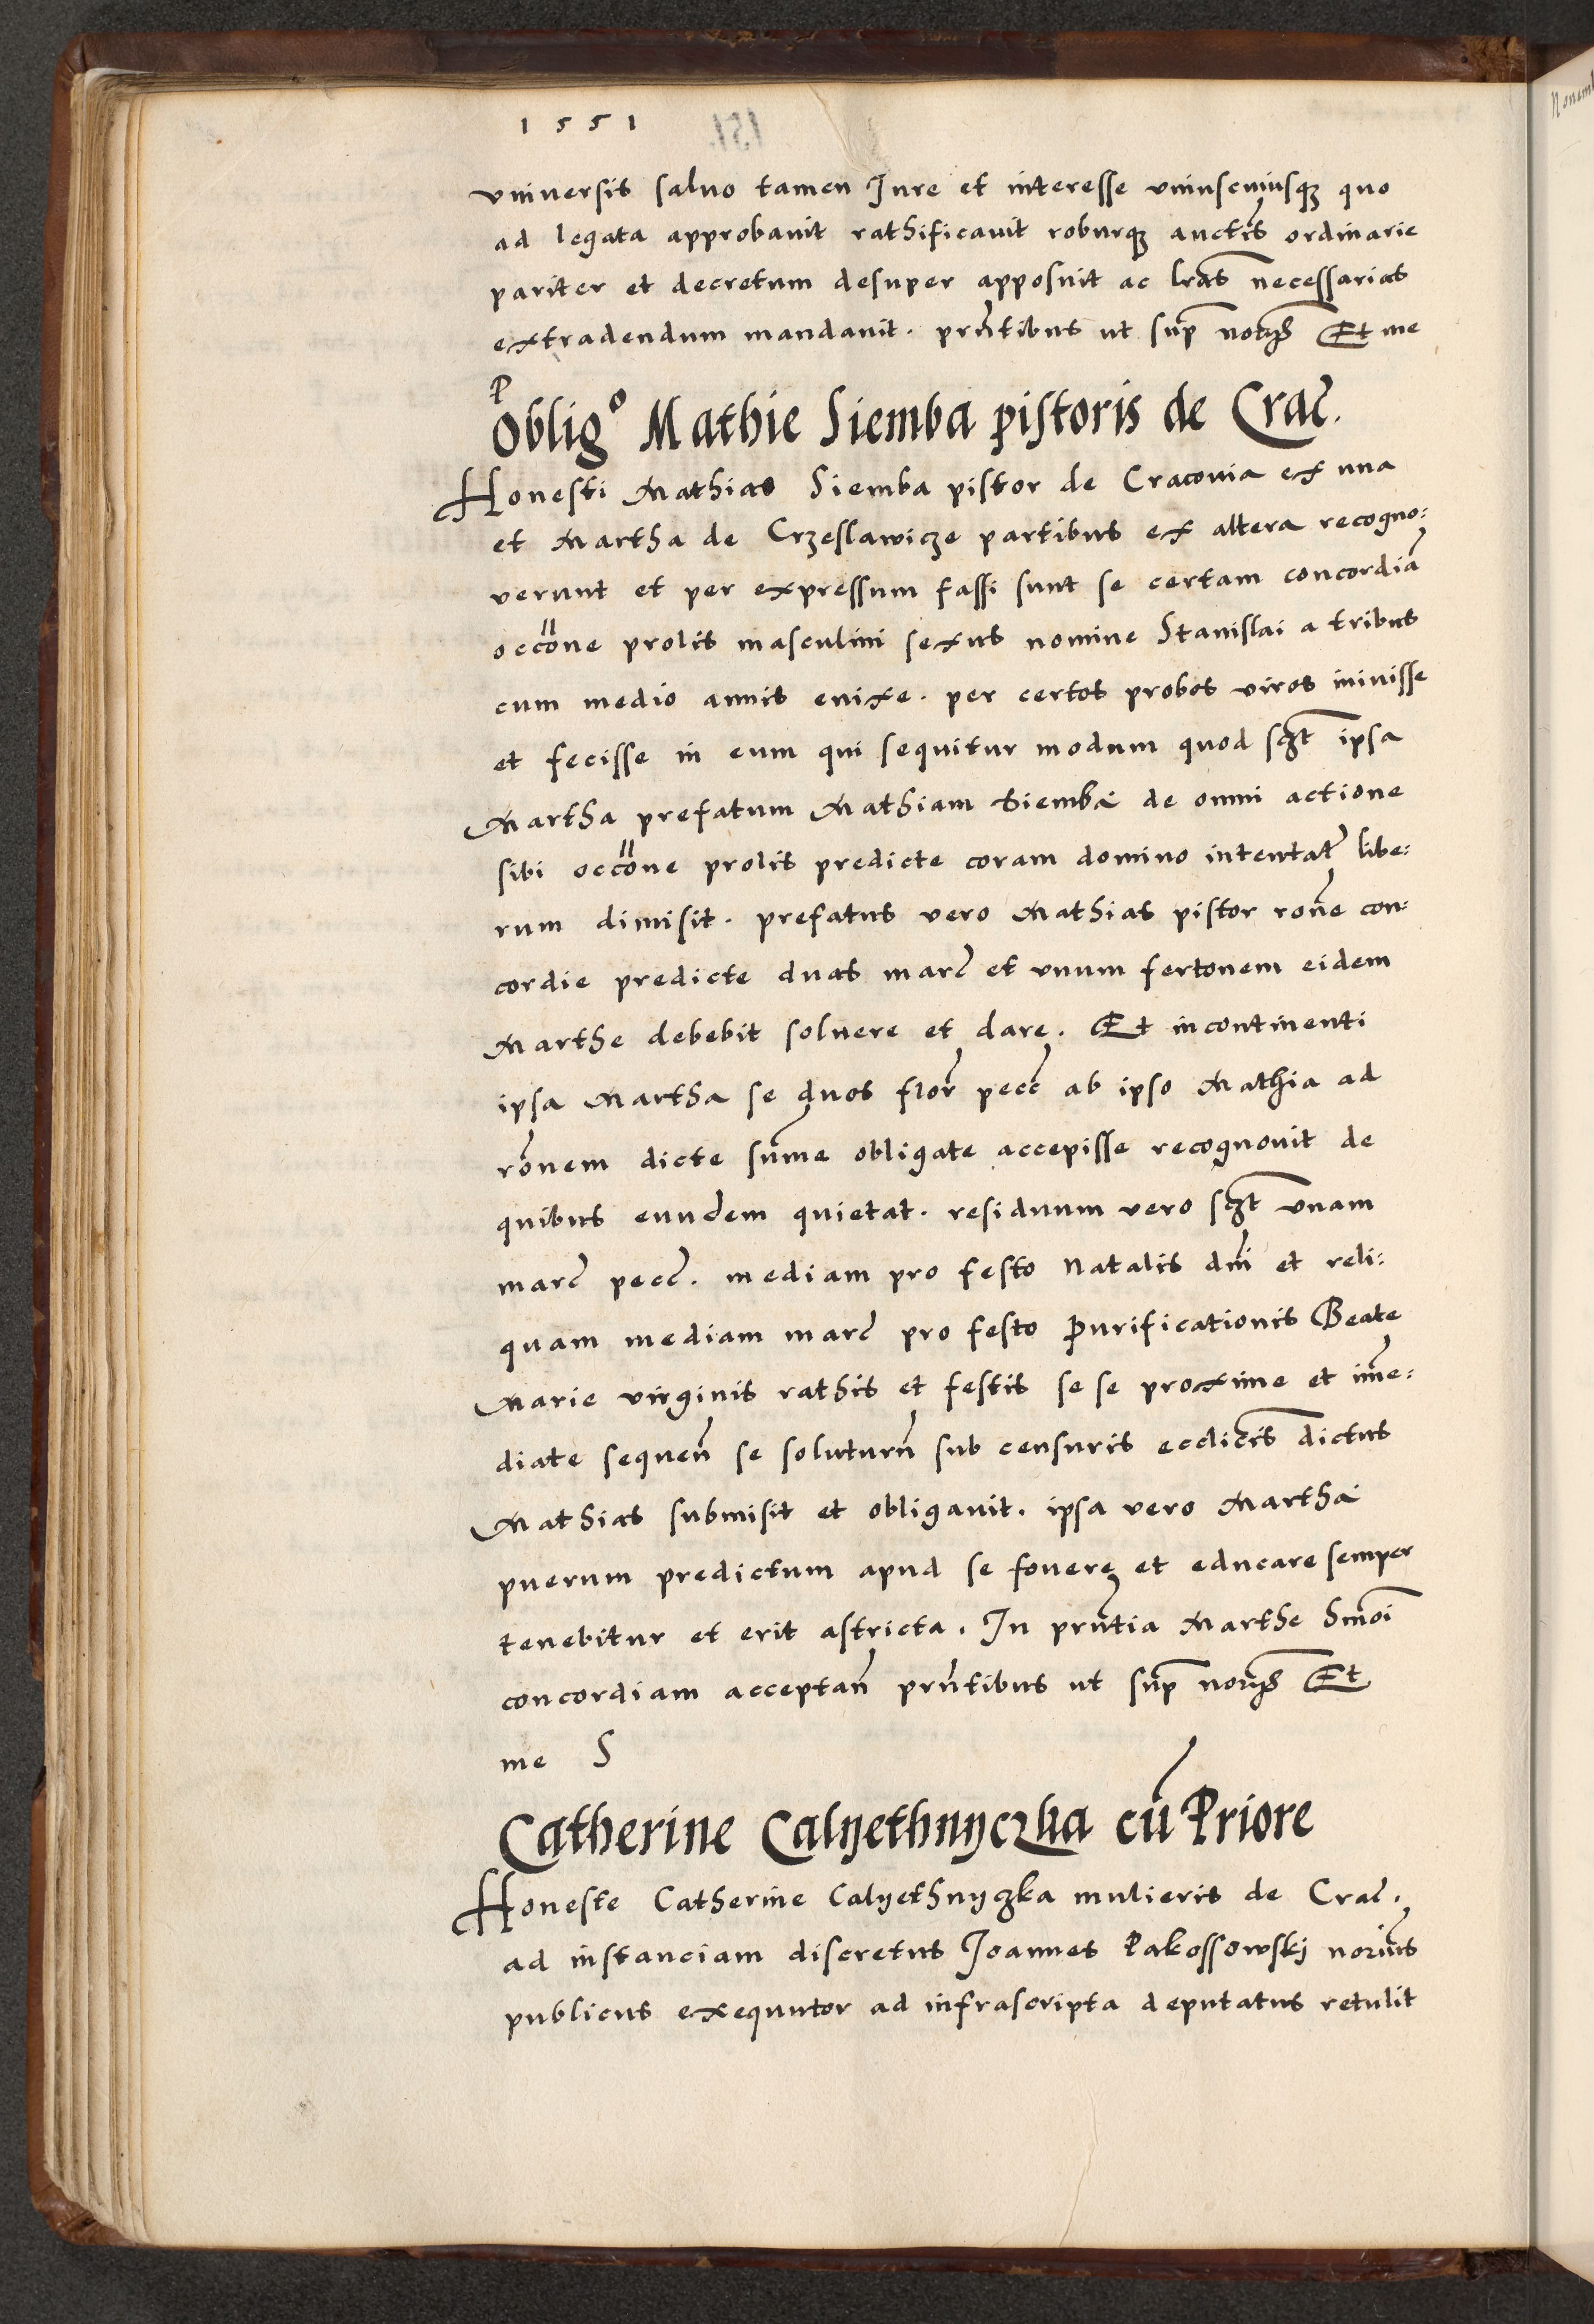 1551
vniversis salvo tamen Jure et interesse vniuscuiusqz quo
ad legata approbavit rathificavit roburqz auctis ordinarie
pariter et decretum desuper apposuit ac lras necessarias
extradendum mandavit. prntibus ut sup Et me
P
Oblig° Mathie Siemba pistoris de Crac.
Honesti Mathias Siemba pistor de Cracovia ex una
et Martha de Crzeslawicze partibus ex altera recogno:
verunt et per expressum fassi sunt se certam concordiā
occōne prolis masculini sexus nomine Stanislai a tribus
cum medio annis enixe. per certos probos viros inivisse
et fecisse in eum qui sequitur modum quod sczt ipsa
Martha prefatum Mathiam Siemba de omni actione
sibi occōne prolis predicte coram domino intentat libe:
rum dimisit. prefatus vero Mathias pistor rone con:
cordie predicte duas marc et vnum fertonem eidem
Marthe debebit solvere et dare. Et incontinenti
ipsa Martha se duos flor pecc ab ipso Mathia ad
ronem dicte sume obligate accepisse recognovit de
quibus eundem quietat. residuum vero sczt vnam
marc pecc. mediam pro festo Natalis dni et reli:
quam mediam marc pro festo Purificationis Beate
Marie virginis rathis et festis se se proxime et ime:
diate sequen se soluturn sub censuris ecclicis dictus
Mathias submisit et obligavit. ipsa vero Martha
puerum predictum apud se fovere et educare semper
tenebitur et erit astricta. In prntia Marthe hmoi
concordiam acceptan prntibus ut sup Et
me S
Catherine Calyethnyczka cū Priore
Honeste Catherine Calyethnyczka mulieris de Crac.
ad instanciam discretus Joannes Pakossowskj norius
publicus exequutor ad infrascripta deputatus retulit